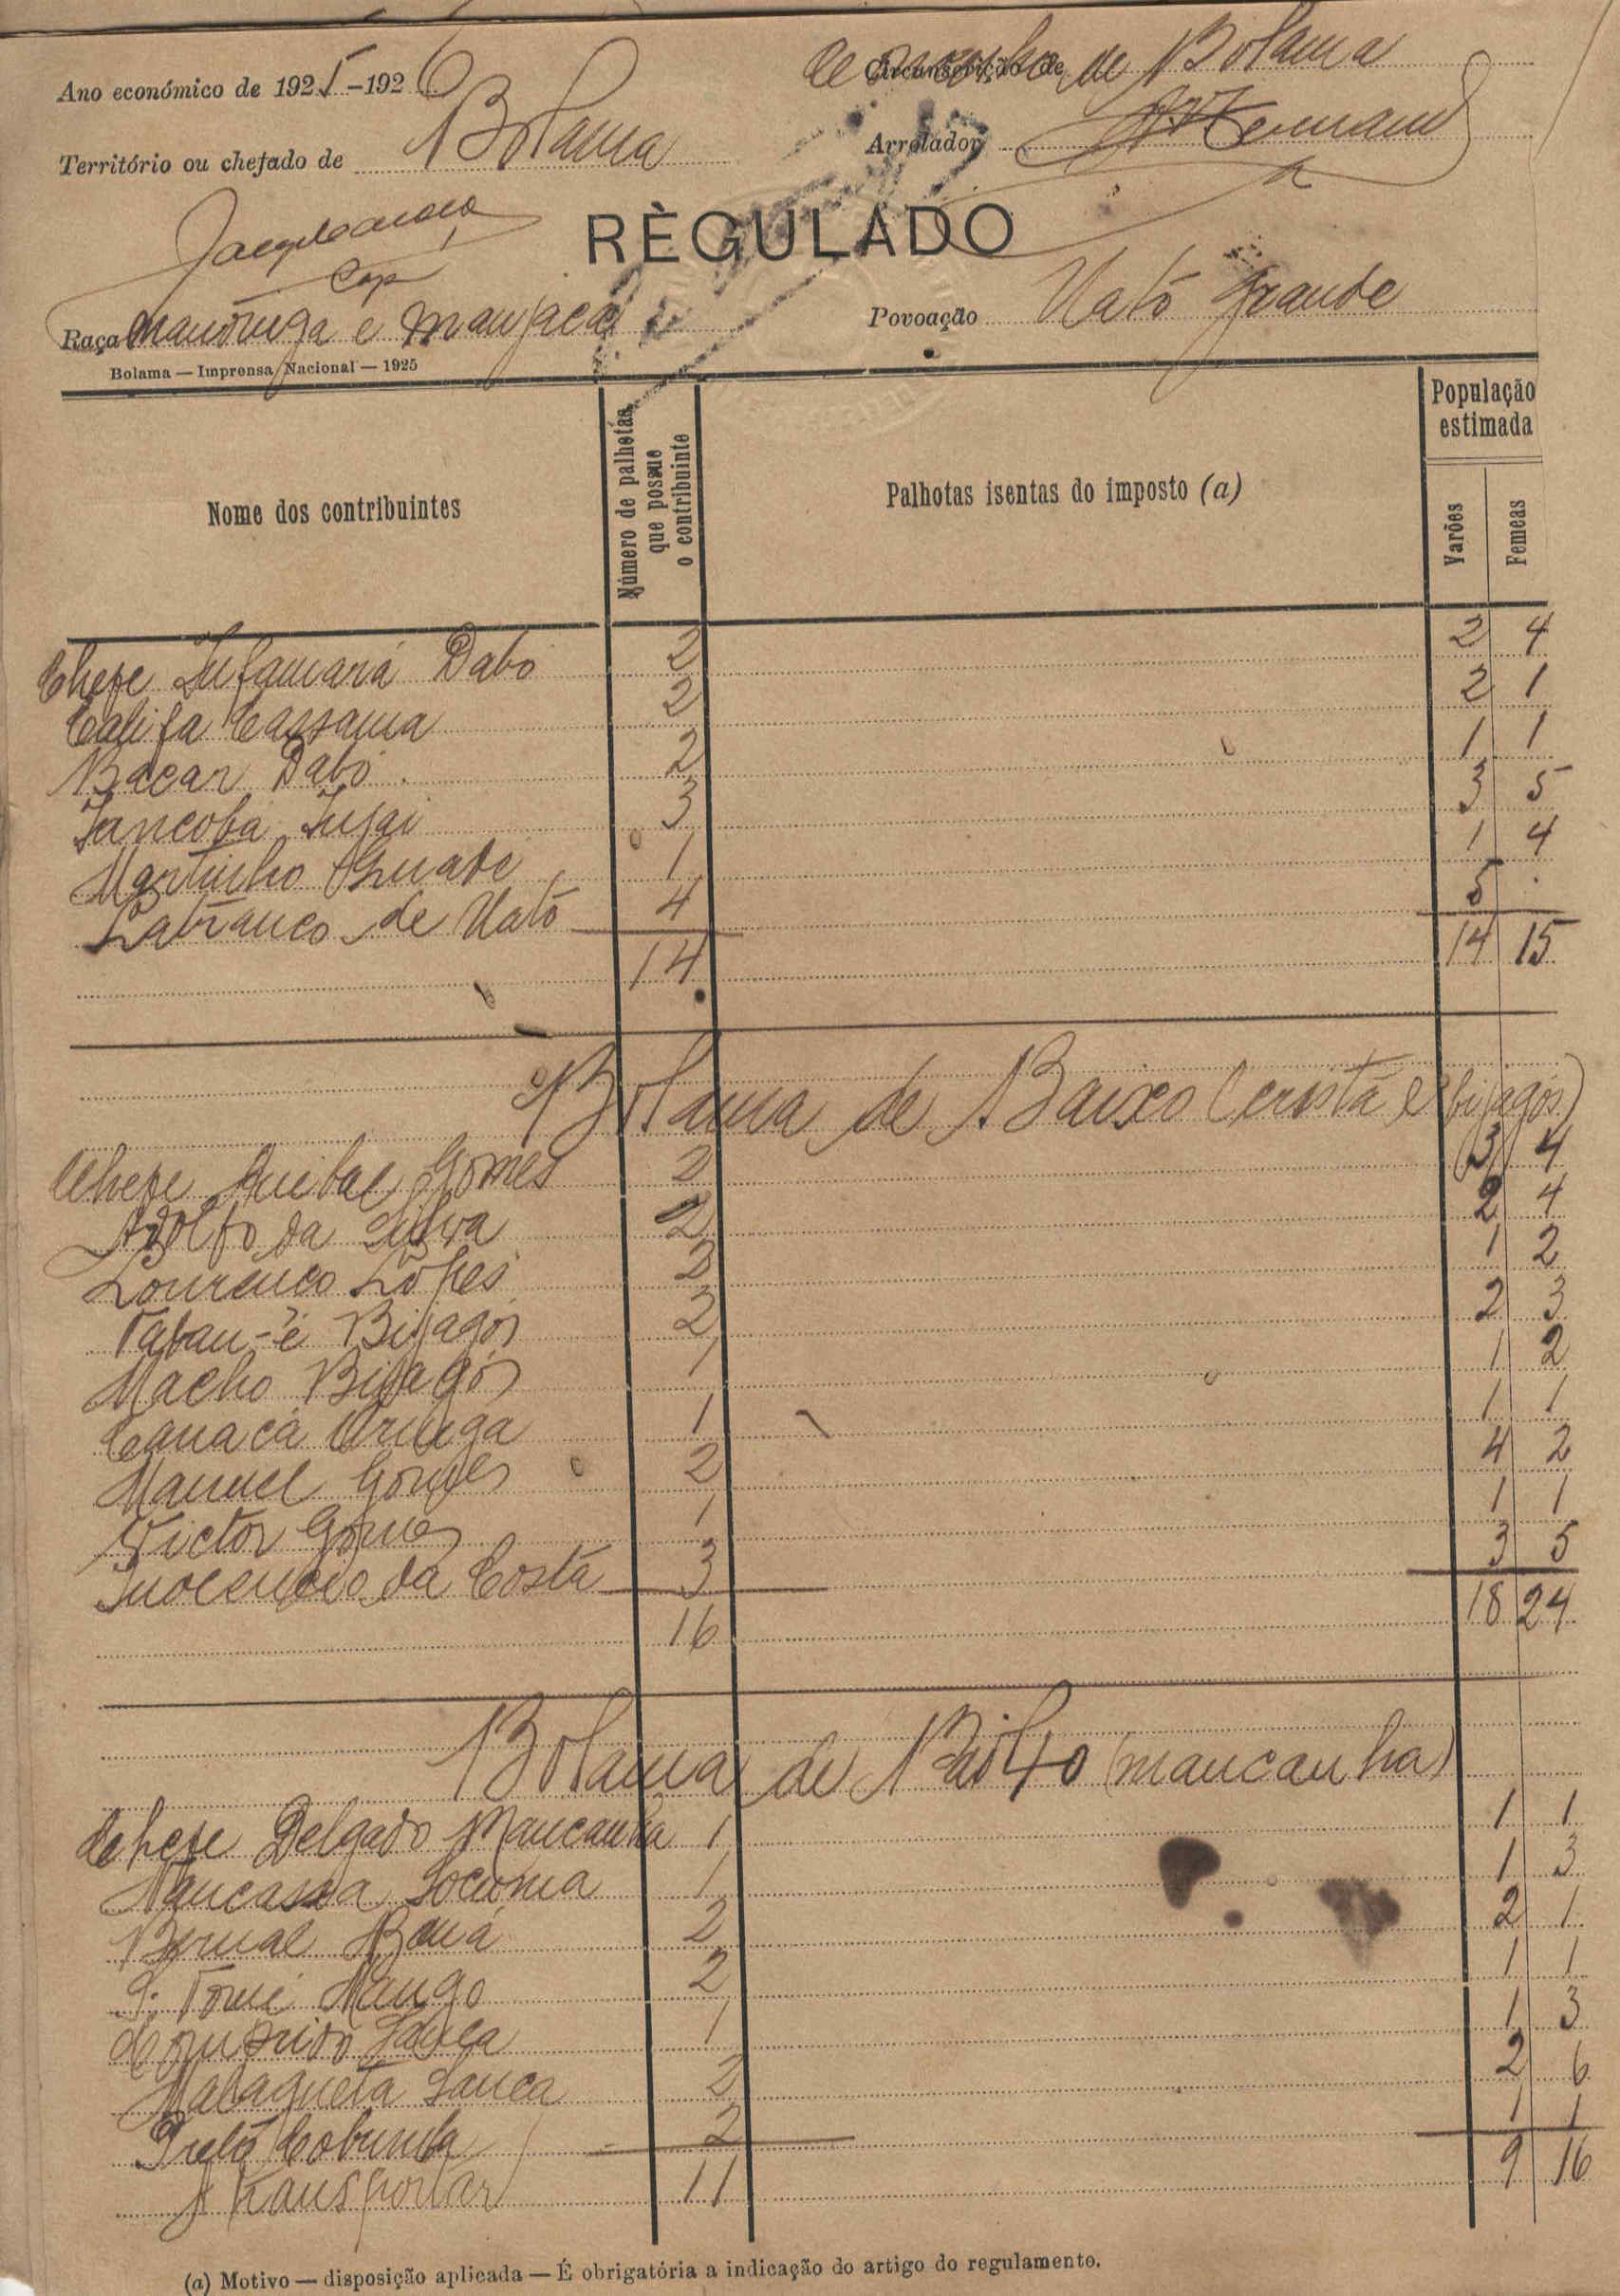 Ano económico de 1925-1926
Concelho de Bolama
Circunscrição de
Território ou chefado de Bolama
Arrolador
RÈGULADO
Raça mandinga e manjaca
Povoação Uató Grande
Bolama — Imprensa Nacional — 1925
Nome dos contribuintes
Número de palhotas que possue o contribuinte
Palhotas isentas do imposto (a)
População estimada
Varões
Femeas
Chefe Infamará Dabó 2 2 4
Califa Cassama 2 2 1
Bacar Dabó 2 1 1
Jancoba Injai 3 3 5
Martinho 1 1 4
de Uató 4 5
14 14 15
Bolama de Baixo (cristã e bijagós)
Chefe Anibal Gomes 2 3 4
Adolfo da Silva 2 2 4
Lourenço Lópes 2 1 2
Bijagós 2 2 3
Macho Bijagós 1 1 2
1 1 1
Manuel Gomes 2 4 2
Victor Gomes 1 1 1
Inocencio da Costa 3 3 5
16 18 24
Bolama de (mancanha)
Chefe Delgado Mancanha 1 1 1
1 1 3
2 2 1
S. Tomé Nango 2 1 1
1 1 3
Malagueta Lanca 2 2 6
Preto 2 1 1
A Transportar 11 9 16
(a) Motivo — disposição aplicada — É obrigatória a indicação do artigo do regulamento.